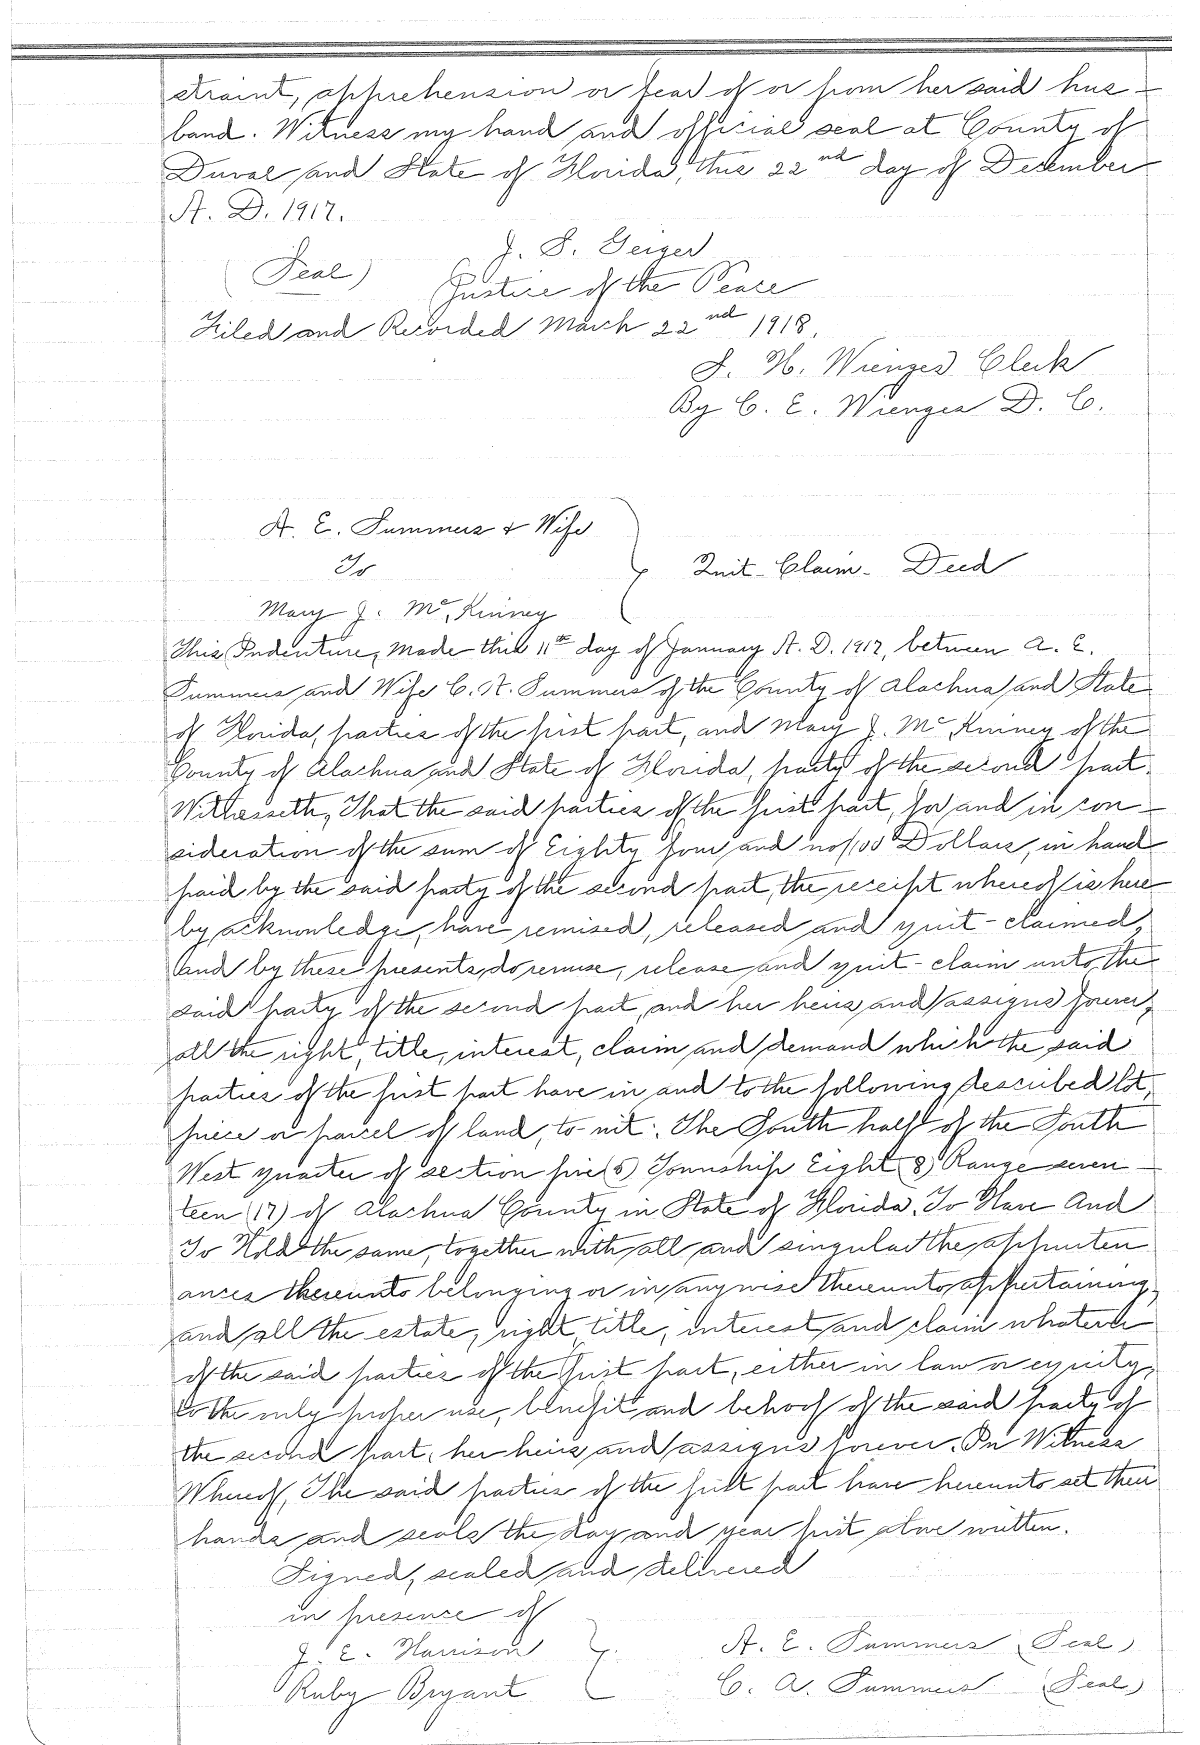 straint, apprehension or fear of or from her said hus-
band. Witness my hand and official seal at County of
Duval and State of Florida, this 22nd day of December
A. D. 1917.
J. S. Geiger
(Seal)
Justice of the Peace
Filed and Recorded March 22nd 1918.
S. H. Wienges Clerk
By C. E. Wienges D. C.
A. E. Summers & Wife
To
Quit-Claim-Deed
Mary J. McKinney
This Indenture, Made this 11th day of January A. D. 1917, between A. E.
Summers and Wife C. A. Summers of the County of Alachua and State
of Florida, parties of the first part, and Mary J. McKinney of the
County of Alachua and State of Florida, party of the second part.
Witnesseth, That the said parties of the first part, for and in con-
sideration of the sum of Eighty four and no/100 Dollars, in hand
paid by the said party of the second part, the receipt whereof is here
by acknowledge, have remised, released and quit-claimed,
and by these presents, do remise, release and quit-claim unto the
said party of the second part, and her heirs and assigns forever,
all the right, title, interest, claim and demand which the said
parties of the first part have in and to the following described lot,
piece or parcel of land, to-wit: The South half of the South
West quarter of section five (5) Township Eight (8) Range seven-
teen (17) of Alachua County in State of Florida. To Have And
To Hold the same, together with all and singular the appurten
ances thereunto belonging or in anywise thereunto appertaining,
and all the estate, right, title, interest and claim whatever
of the said parties of the first part, either in law or equity,
to the only proper use, benefit and behoof of the said party of
the second part, her heirs and assigns forever. In Witness
Whereof, The said parties of the first part have hereunto set their
hands and seals the day and year first above written.
Signed, sealed and delivered
in presence of
J. E. Harrison
A. E. Summers (Seal)
Ruby Bryant
C. A. Summers (Seal)